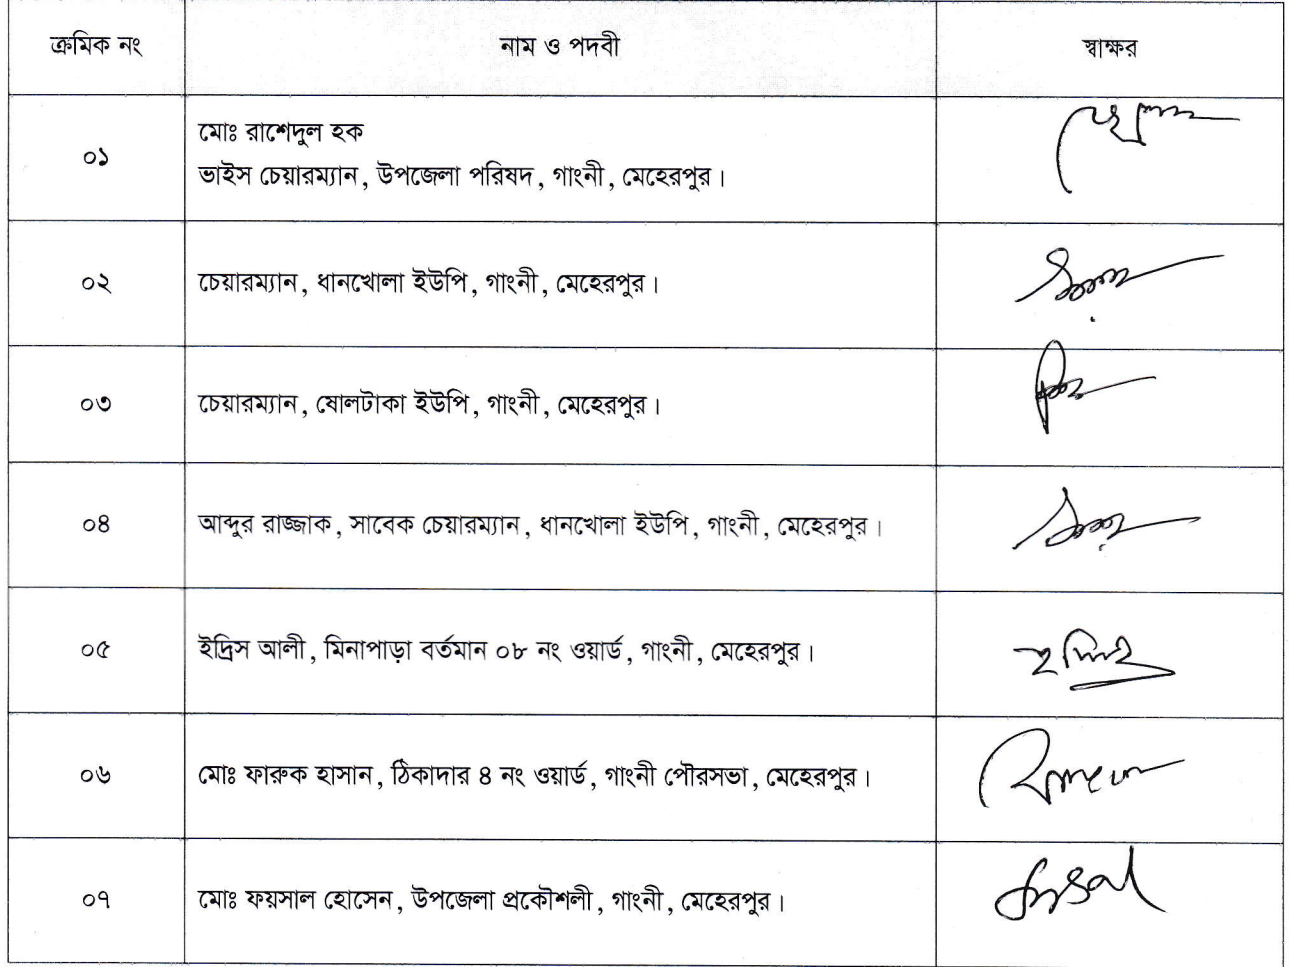 ক্রমিক নং নাম ও পদবী স্বাক্ষর
০১ মোঃ রাশেদুল হক
ভাইস চেয়ারম্যান, উপজেলা পরিষদ, গাংনী, মেহেরপুর।
০২ চেয়ারম্যান, ধানখোলা ইউপি, গাংনী, মেহেরপুর।
০৩ চেয়ারম্যান, ষোলটাকা ইউপি, গাংনী, মেহেরপুর।
০৪ আব্দুর রাজ্জাক, সাবেক চেয়ারম্যান, ধানখোলা ইউপি, গাংনী, মেহেরপুর।
০৫ ইদ্রিস আলী, মিনাপাড়া বর্তমান ০৮ নং ওয়ার্ড, গাংনী, মেহেরপুর।
০৬ মোঃ ফারুক হাসান, ঠিকাদার ৪ নং ওয়ার্ড, গাংনী পৌরসভা, মেহেরপুর।
০৭ মোঃ ফয়সাল হোসেন, উপজেলা প্রকৌশলী, গাংনী, মেহেরপুর।